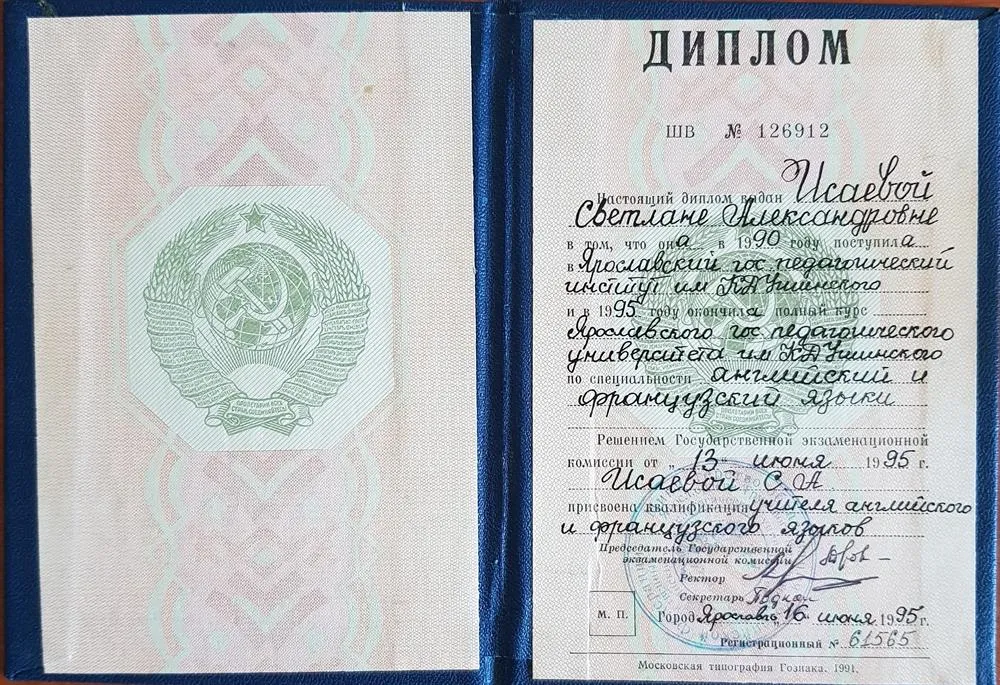 ПРОЛЕТАРИИ ВСЕХ
СТРАН, СОЕДИНЯЙТЕСЬ!
ДИПЛОМ
ШВ № 126912
Настоящий диплом выдан Исаевой
Светлане Александровне
в том, что она в 1990 году поступила
в Ярославский гос педагогический
институт им К Д Ушинского
и в 1995 году окончила полный курс
Ярославского гос педагогического
университета им К Д Ушинского
по специальности английский и
французский языки
Решением Государственной экзаменационной
комиссии от „13“ июня 1995 г.
Исаевой С А
присвоена квалификация учителя английского
и французского языков
Председатель Государственной
экзаменационной комиссии
Ректор
Секретарь
М. П. Город Ярославль „16“ июня 1995 г.
Регистрационный № 61565
Московская типография Гознака. 1991.